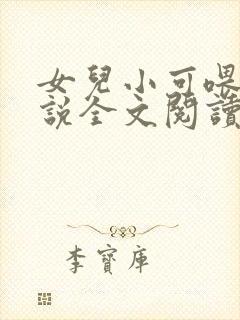 女兒小可喂
說全文閱讀
李寶庫